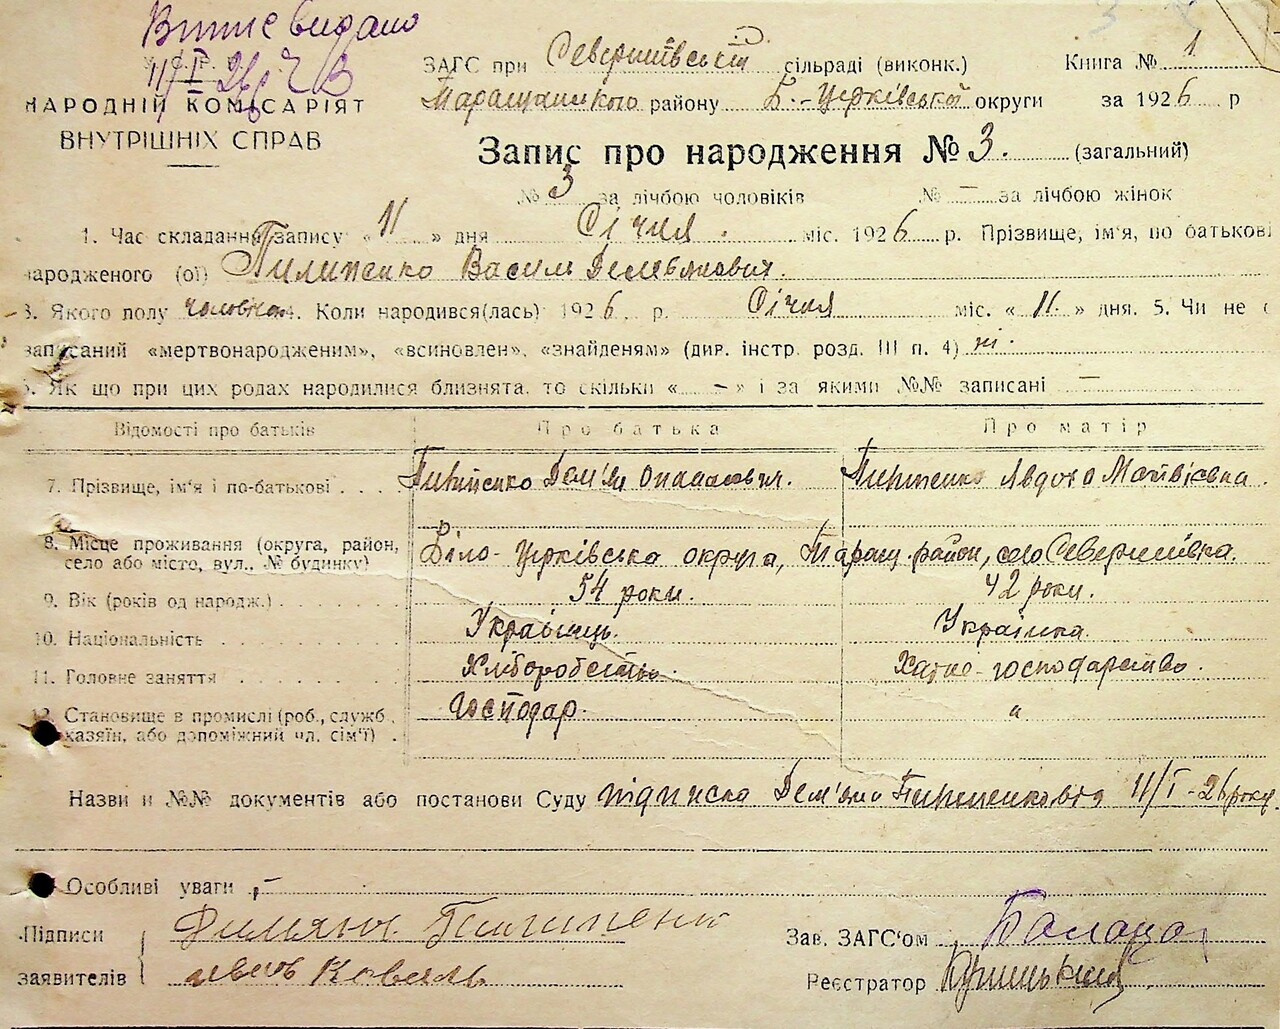 Витяг видано
11/I 26 р.
НАРОДНІЙ КОМІСАРІЯТ
ВНУТРІШНІХ СПРАВ
ЗАГС при Северинівській сільраді (виконк.) Книга № 1
Таращанского району Б.-Церківської округи за 1926 р
Запис про народження № 3. (загальний)
№ 3 за лічбою чоловіків № — за лічбою жінок
1. Час складання запису « 11 » дня Січня. міс. 1926 р. Прізвище, ім'я, по батькові
народженого (ої) Пилипенко Василь Демьянович.
3. Якого полу чоловіч. 4. Коли народився(лась) 1926 р. Січня міс. « 11. » дня. 5. Чи не є
записаний «мертвонародженим», «всиновлен», «знайденям» (див. інстр. розд. III п. 4) ні.
6. Як що при цих родах народилися близнята, то скільки « — » і за якими №№ записані —
Відомості про батьків Про батька Про матір
7. Прізвище, ім'я і по-батькові . . . . Пилипенко Дем'ян Опанасович. Пилипенко Явдоха Матвієвна.
8. Місце проживання (округа, район, село або місто, вул., № будинку) Біло-Церківська округа, Таращ. район, село Северинівка.
9. Вік (років од народж.) . . . . 54 роки. 42 роки.
10. Національність . . . . Українець. Українка.
11. Головне заняття . . . . Хліборобство. Хатнє-господарство.
12. Становище в промислі (роб., служб., хазяїн, або допоміжний чл. сім'ї) . Господар. "
Назви и №№ документів або постанови Суду підписка Дем'яна Пилипенкова 11/I-26 року.
Особливі уваги —
Підписи заявителів
Демяна Пилипенко
Коваль
Зав. ЗАГС'ом
Реєстратор